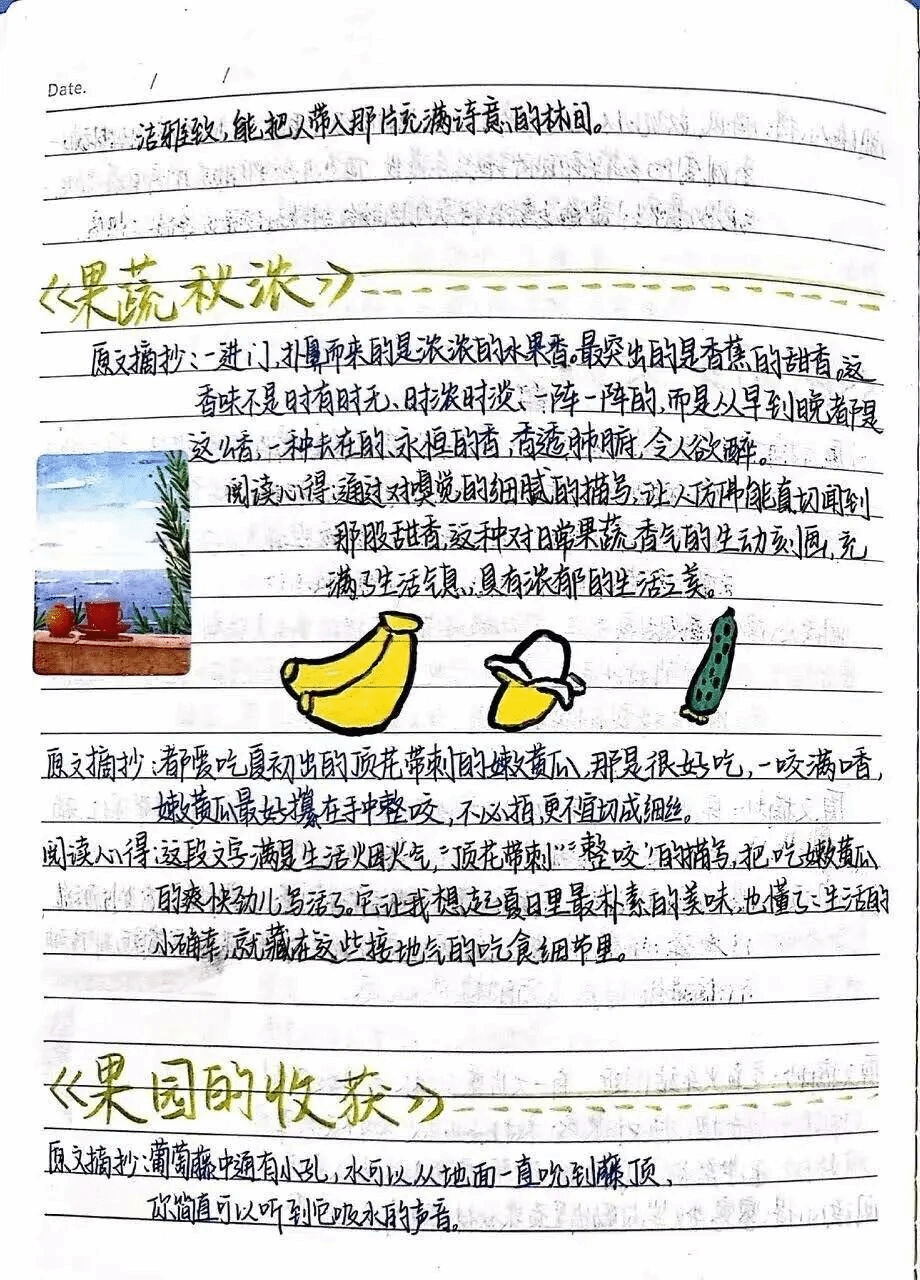 Date. / /
洁雅致,能把人带入那片充满诗意的林间。
《果蔬秋浓》
原文摘抄:一进门,扑鼻而来的是浓浓的水果香。最突出的是香蕉的甜香。这
香味不是时有时无、时浓时淡、一阵一阵的,而是从早到晚都是
这么香,一种去在的、永恒的香,香透肺腑,令人欲醉。
阅读心得:通过对嗅觉的细腻的描写,让人仿佛能真切闻到
那股甜香,这种对日常果蔬香气的生动刻画,充
满了生活气息,具有浓郁的生活之美。
原文摘抄:都爱吃夏初出的顶花带刺的嫩黄瓜,那是很好吃,一咬满口香,
嫩黄瓜最好攥在手中整咬,不必拍,更不宜切成细丝。
阅读心得:这段文字满是生活烟火气,“顶花带刺”“整咬”的描写,把吃嫩黄瓜
的爽快劲儿写活了。它让我想起夏日里最朴素的美味,也懂了:生活的
小确幸,就藏在这些接地气的吃食细节里。
《果园的收获》
原文摘抄:葡萄藤中通有小孔,水可以从地面一直吮到藤顶,
你简直可以听到它吸水的声音。